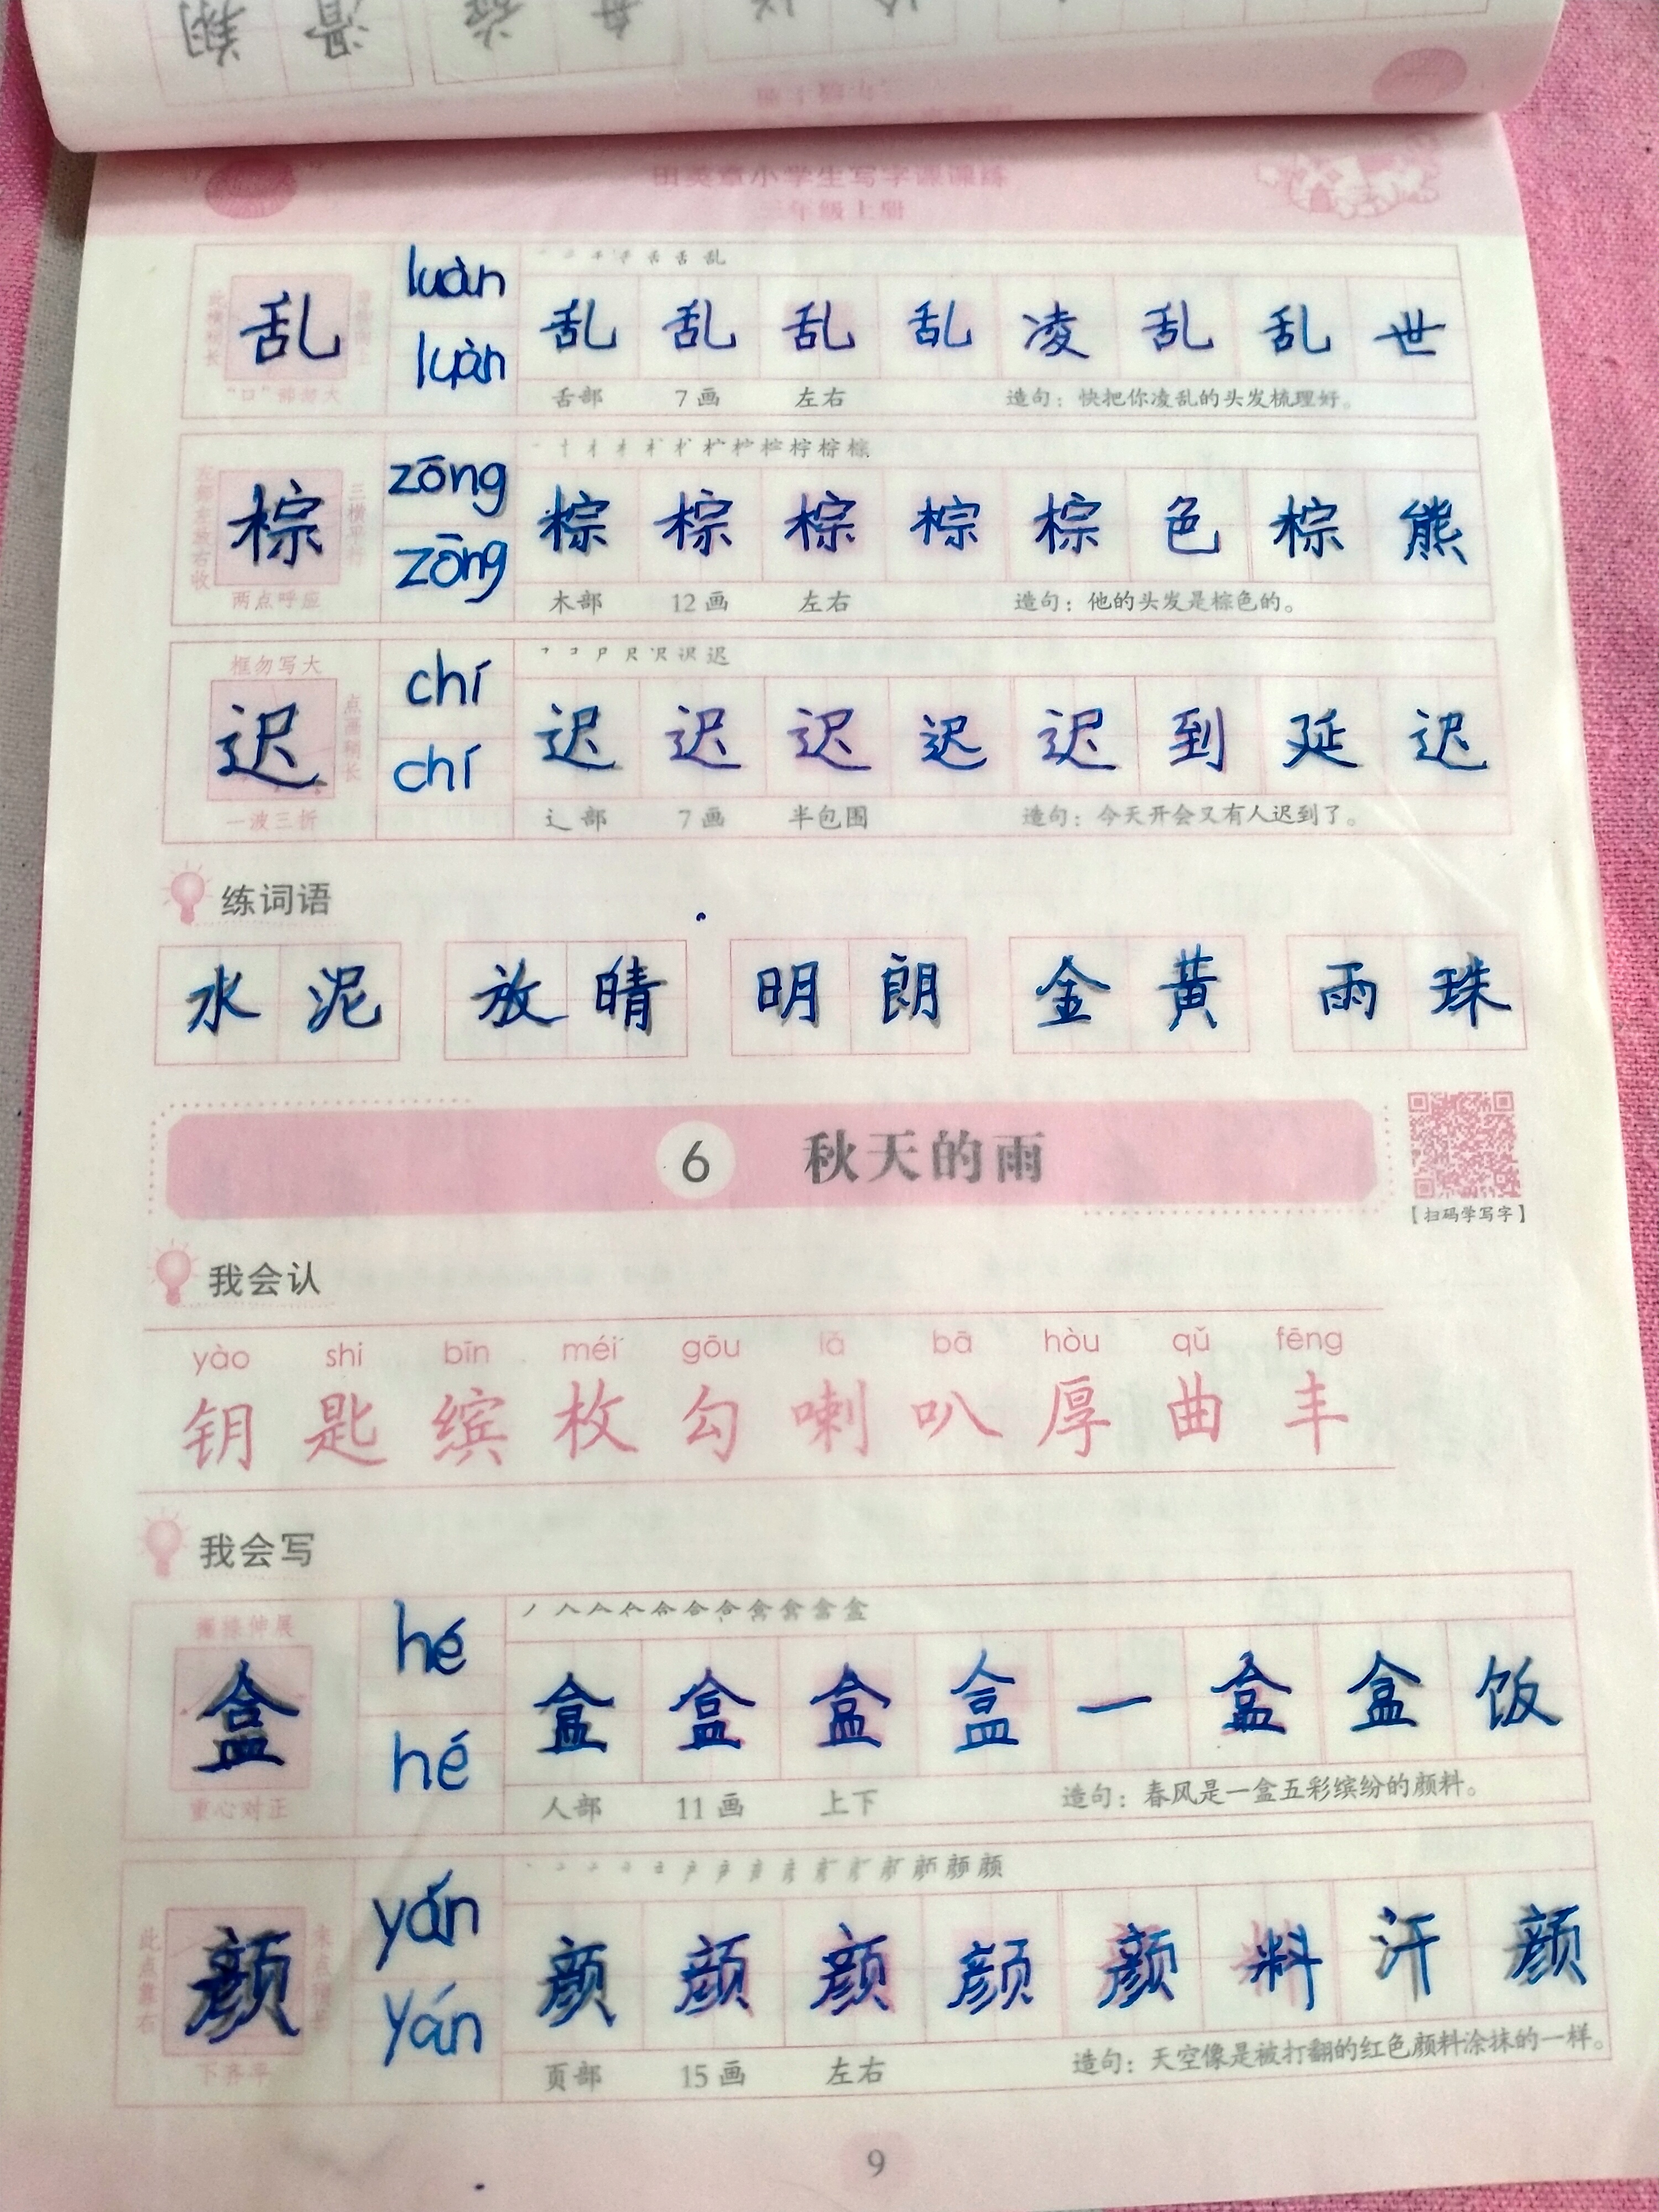 田英章小学生写字课课练
三年级上册
乱 luàn 乱 乱 乱 乱 凌 乱 乱 世
luàn
舌部 7画 左右 造句：快把你凌乱的头发梳理好。
棕 zōng 棕 棕 棕 棕 棕 色 棕 熊
zōng
两点呼应
木部 12画 左右 造句：他的头发是棕色的。
框勿写大
迟 chí 迟 迟 迟 迟 迟 到 延 迟
chí
点画稍长
一波三折
辶部 7画 半包围 造句：今天开会又有人迟到了。
练词语
水泥 放晴 明朗 金黄 雨珠
6 秋天的雨
【扫码学写字】
我会认
yào shi bīn méi gōu lǎ bā hòu qǔ fēng
钥 匙 缤 枚 勾 喇 叭 厚 曲 丰
我会写
盒 hé 盒 盒 盒 盒 一 盒 盒 饭
hé
重心对正
人部 11画 上下 造句：春风是一盒五彩缤纷的颜料。
颜 yán 颜 颜 颜 颜 颜 料 汗 颜
yán
此点靠右
下齐平
页部 15画 左右 造句：天空像是被打翻的红色颜料涂抹的一样。
9